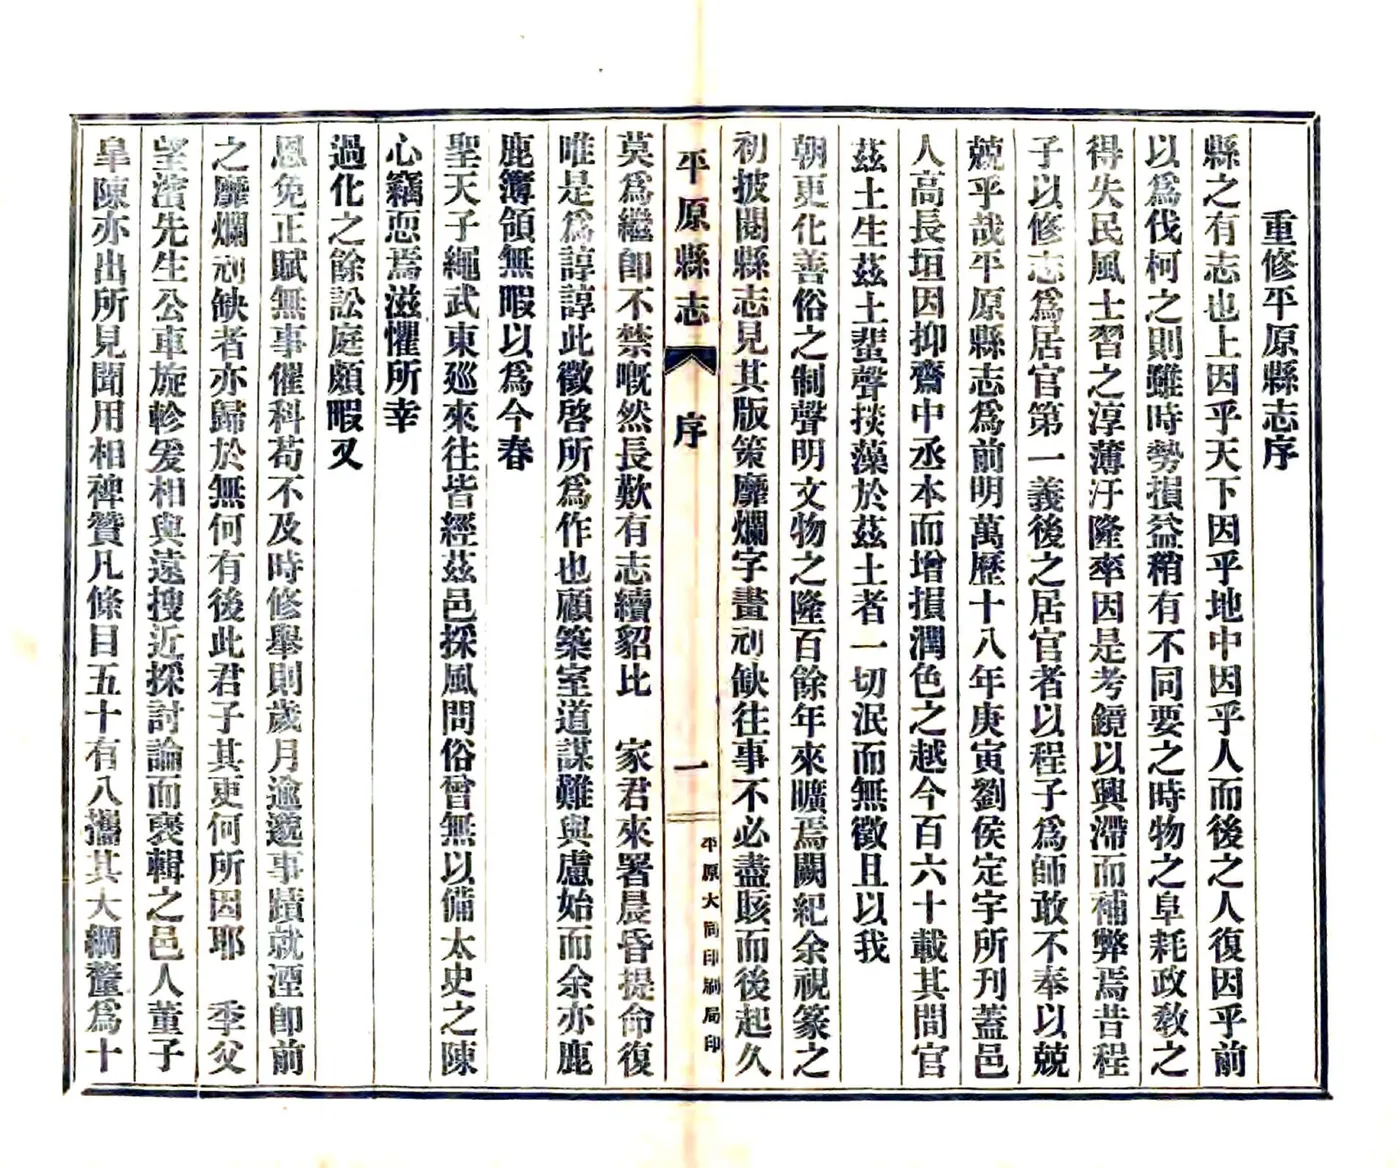 重修平原縣志序
縣之有志也上因乎天下因乎地中因乎人而後之人復因乎前
以爲伐柯之則雖時勢損益稍有不同要之時物之阜耗政敎之
得失民風士習之淳薄汙隆率因是考鏡以興滯而補弊焉昔程
子以修志爲居官第一義後之居官者以程子爲師敢不奉以兢
兢乎哉平原縣志爲前明萬歷十八年庚寅劉侯定宇所刊蓋邑
人高長垣因抑齋中丞本而增損潤色之越今百六十載其間官
茲土生茲土蜚聲掞藻於茲土者一切泯而無徵且以我
朝更化善俗之制聲明文物之隆百餘年來曠焉闕紀余視篆之
初披閱縣志見其版策靡爛字畫刓缺往事不必盡賅而後起久
平原縣志
序
一
平原大同印刷局印
莫爲繼卽不禁嘅然長歎有志續貂比　家君來署晨昏提命復
唯是爲諄諄此徵啓所爲作也顧築室道謀難與慮始而余亦鹿
鹿簿領無暇以爲今春
聖天子繩武東廵來往皆經茲邑採風問俗曾無以備太史之陳
心竊恧焉滋懼所幸
過化之餘訟庭頗暇又
恩免正賦無事催科苟不及時修舉則歲月逾邈事蹟就湮卽前
之靡爛刓缺者亦歸於無何有後此君子其更何所因耶　季父
望濱先生公車旋軫爰相與遠搜近採討論而裒輯之邑人董子
臯陳亦出所見聞用相裨贊凡條目五十有八攝其大綱釐爲十